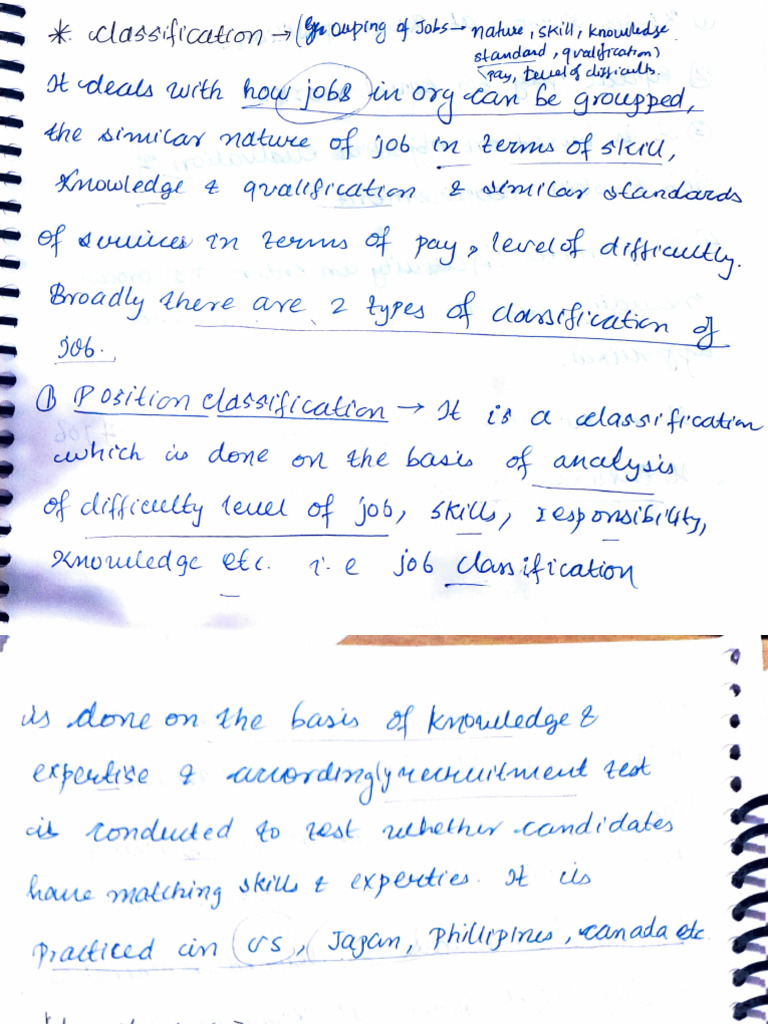 * classification → (Grouping of Jobs → nature, skill, knowledge
standard, qualification)
(pay, level of difficulty
It deals with how jobs in org can be groupped,
the similar nature of job in terms of skill,
knowledge & qualification & similar standards
of services in terms of pay, level of difficultly.
Broadly there are 2 types of classification of
job.
① Position classification → It is a classification
which is done on the basis of analysis
of difficulty level of job, skills, responsibility,
knowledge etc. i.e job classification
is done on the basis of knowledge &
expertise & accordingly recruitment test
is conducted to test whether candidates
have matching skills & experties. It is
Practiced in US, Japan, Phillipines, Canada etc.